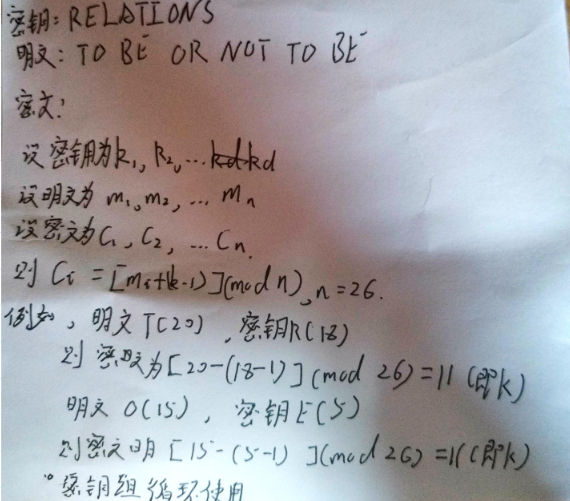 密钥: RELATIONS
明文: TO BE OR NOT TO BE
密文:
设密钥为k₁, k₂, ... kd
设明文为 m₁, m₂, ... mₙ
设密文为C₁, C₂, ... Cₙ.
则 Cᵢ = [mᵢ+(k-1)](mod n), n=26.
例如, 明文T(20), 密钥R(18)
则密文为[20-(18-1)](mod 26)=11(即K)
明文 O(15), 密钥E(5)
则密文 [15-(5-1)](mod 26)=11(即K)
密钥 循环使用